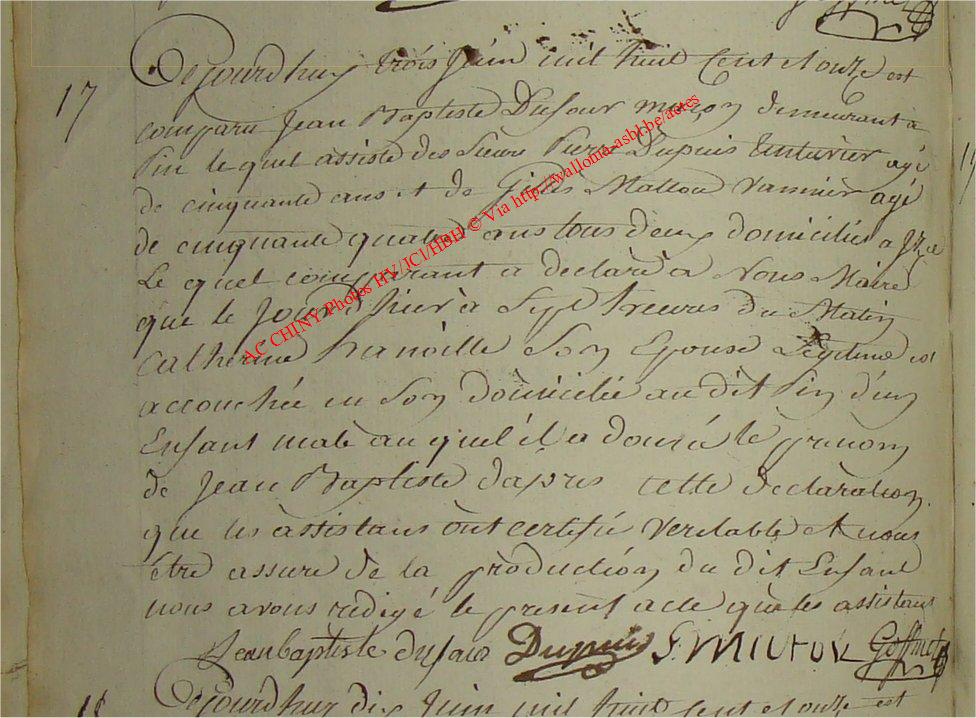 17
Ce jourd'huy trois Juin mil huit Cent et onze est
comparu Jean Baptiste Dufour maçon demeurant a
Pin le quel assisté des Sieurs Pierre Dupuis age
de cinquante ans et de Gilles Vannier agé
de cinquante quatre ans tous deux domiciliés a
Le quel comparant a declaré a Nous Maire
que le Jour d'hier à Sept heures du Matin
Catherine Son Epouse Legitime est
accouchée en Son domicilie au dit Pin d'un
Enfant male au quel il a donné le prenom
de Jean Baptiste d'apres cette declaration
que les assistans ont certifié veritable et nous
être assuré de la production du dit Enfant
nous avons redigé le present acte que les assistans
Jean baptiste dufour Dupuis Goffinet
Ce jourd'huy dix Juin mil huit cent et onze est
AC CHINY Photos HV/JCl/HbH © Via http://wallonia-asbl.be/actes